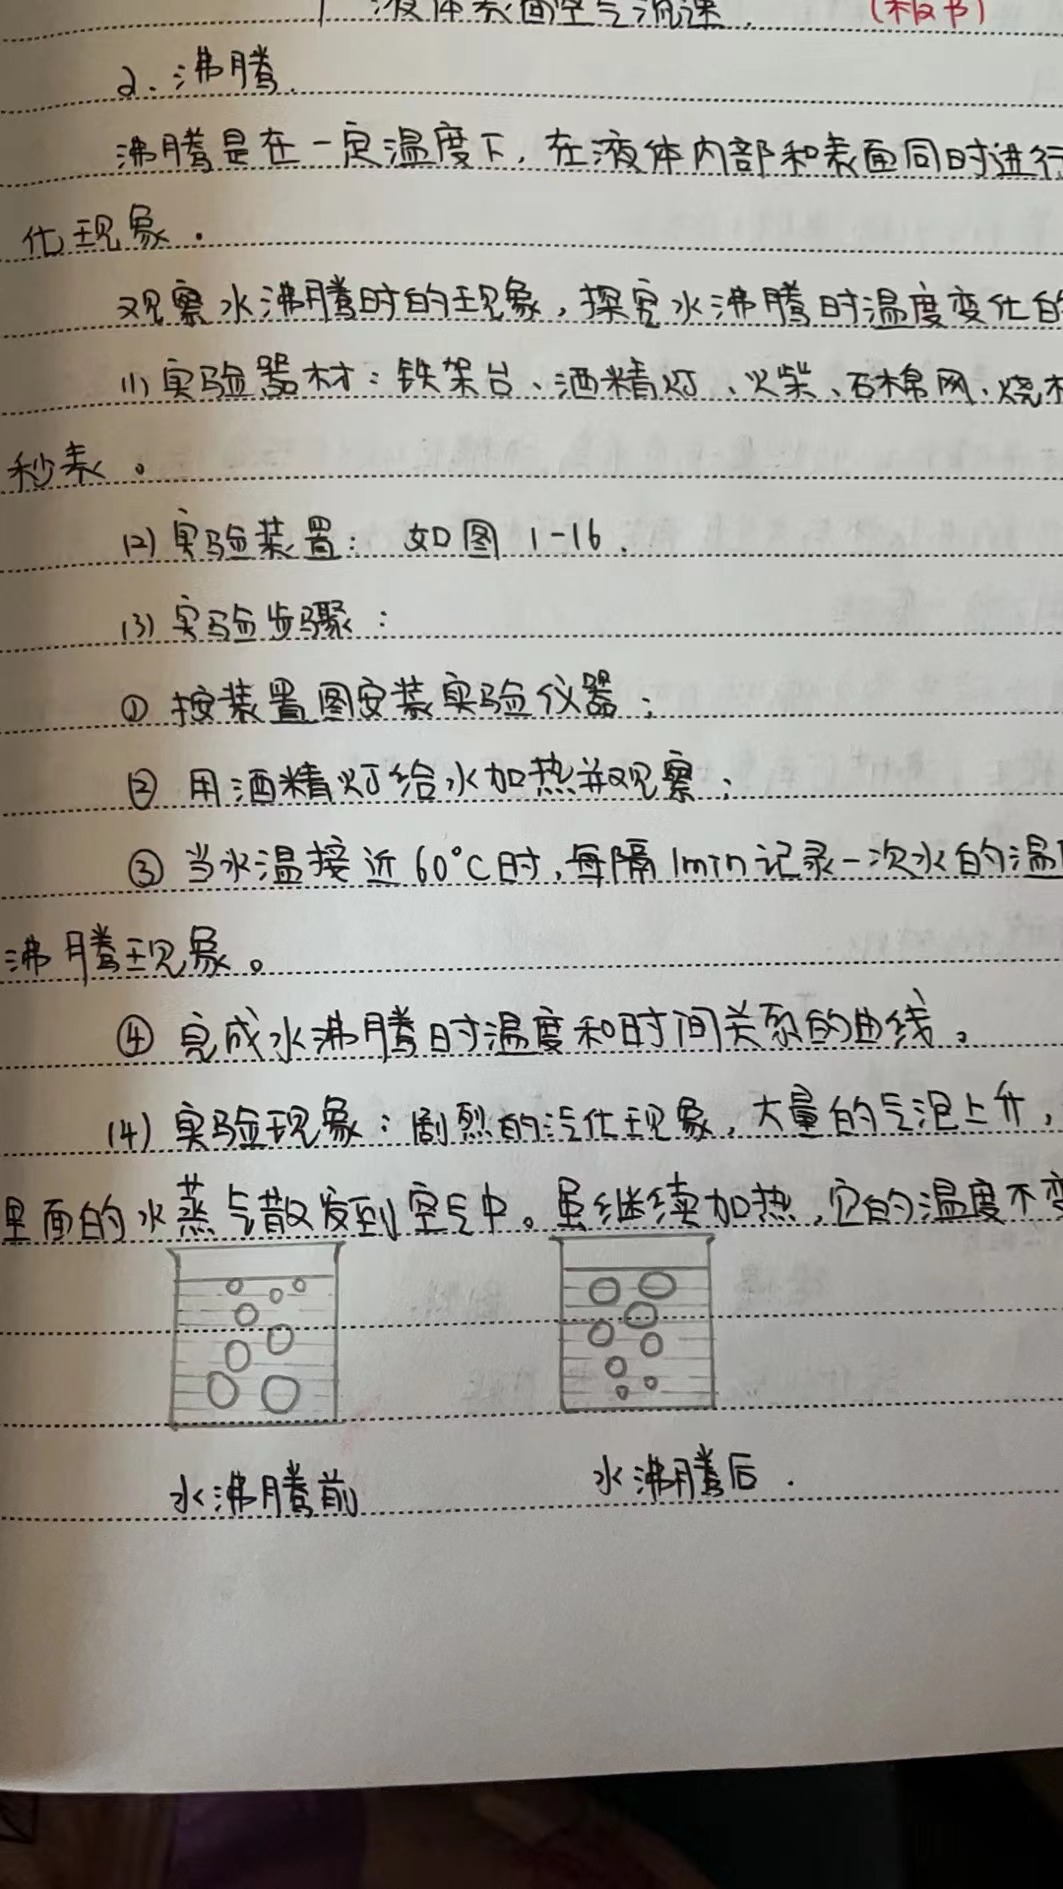 液体表面空气流速. (板书)
2. 沸腾.
沸腾是在一定温度下, 在液体内部和表面同时进行
化现象.
观察水沸腾时的现象, 探究水沸腾时温度变化的
(1) 实验器材: 铁架台、酒精灯、火柴、石棉网、烧杯
秒表。
(2) 实验装置: 如图 1-16.
(3) 实验步骤:
① 按装置图安装实验仪器;
② 用酒精灯给水加热并观察;
③ 当水温接近60°C时, 每隔1min记录一次水的温
沸腾现象。
④ 完成水沸腾时温度和时间关系的曲线。
(4) 实验现象: 剧烈的汽化现象, 大量的气泡上升,
里面的水蒸气散发到空气中。虽继续加热, 它的温度不变
水沸腾前
水沸腾后.